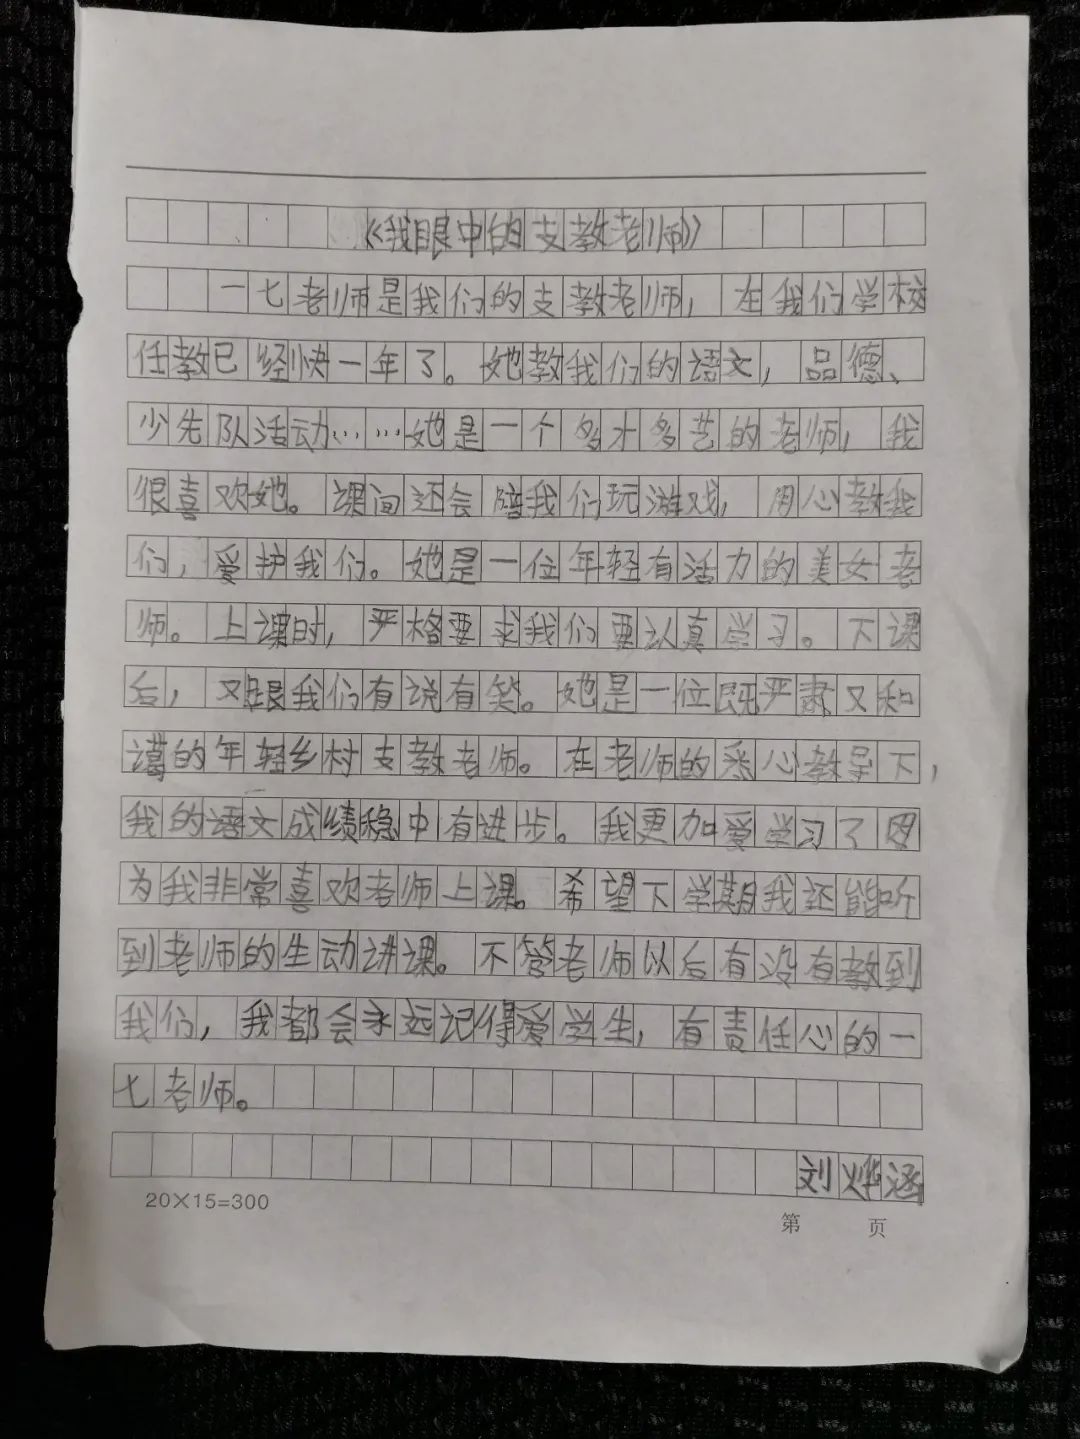 《我眼中的支教老师》
一七老师是我们的支教老师，在我们学校
任教已经快一年了。她教我们的语文，品德、
少先队活动……她是一个多才多艺的老师，我
很喜欢她。课间还会陪我们玩游戏，用心教我
们，爱护我们。她是一位年轻有活力的美女老
师。上课时，严格要求我们要认真学习。下课
后，又跟我们有说有笑。她是一位既严肃又和
蔼的年轻乡村支教老师。在老师的悉心教导下，
我的语文成绩稳中有进步。我更加爱学习了因
为我非常喜欢老师上课。希望下学期我还能听
到老师的生动讲课。不管老师以后有没有教到
我们，我都会永远记得爱学生，有责任心的一
七老师。
刘烨涵
20×15=300
第 页